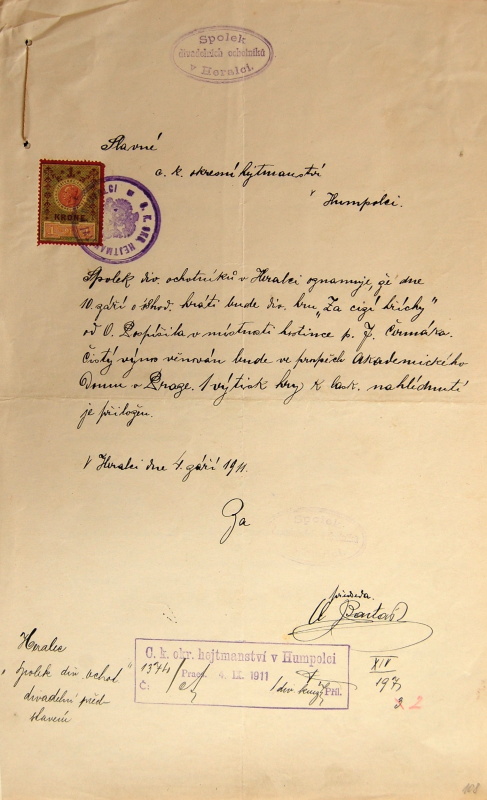 Spolek
divadelních ochotníků
v Heralci.
Slavné
c. k. okresní hejtmanství
v
Humpolci.
KRONE
1
C. K. OKR. HEJTMAN
Spolek div. ochotníků v Heralci oznamuje, že dne
10. září o 8 hod. hráti bude div. hru „Za cizí hříchy"
od O. Pospíšila v místnosti hostince p. J. Čermáka.
Čistý výnos věnován bude ve prospěch Akademického
domu v Praze. 1 výtisk hry k lask. nahlédnutí
je přiložen.
V Heralci dne 4. září 1911.
Za
Spolek
předseda.
Bartoš
Heralec
„Spolek div. ochot"
divadelní před-
stavení
C. k. okr. hejtmanství v Humpolci
Praes. 4. IX. 1911
Č:
1 div. Příl.
XIV
197
3 2
108